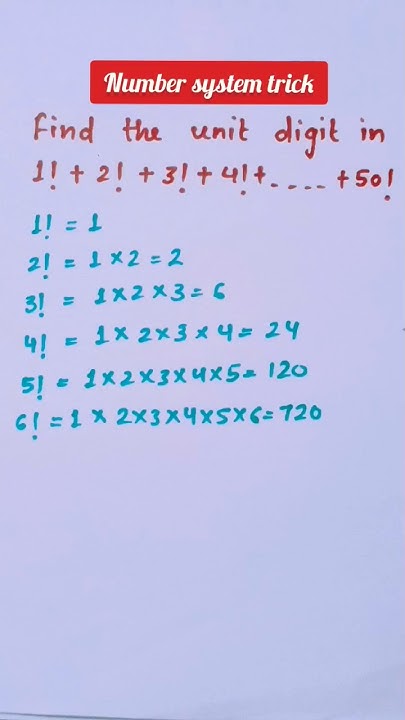 Number system trick
Find the unit digit in
1! + 2! + 3! + 4! + .... + 50!
1! = 1
2! = 1 × 2 = 2
3! = 1 × 2 × 3 = 6
4! = 1 × 2 × 3 × 4 = 24
5! = 1 × 2 × 3 × 4 × 5 = 120
6! = 1 × 2 × 3 × 4 × 5 × 6 = 720